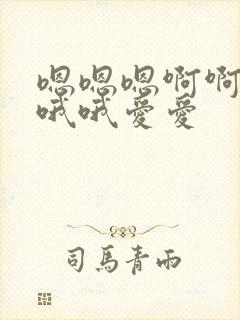 嗯嗯嗯啊啊
哦哦爱爱
司马青雨